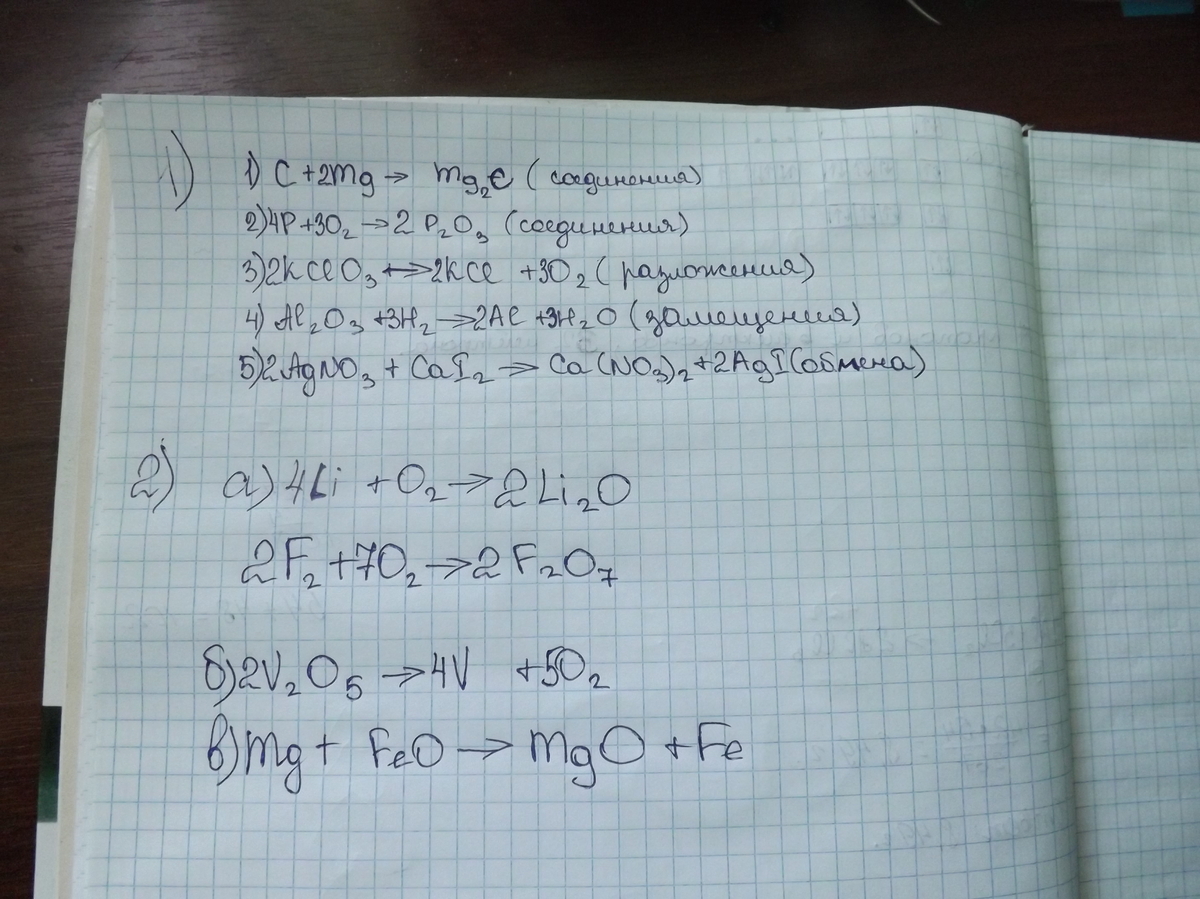 1) 1) C + 2Mg → Mg₂C (соединения)
2) 4P + 3O₂ → 2P₂O₃ (соединения)
3) 2KClO₃ → 2KCl + 3O₂ (разложения)
4) Al₂O₃ + 3H₂ → 2Al + 3H₂O (замещения)
5) 2AgNO₃ + CaI₂ → Ca(NO₃)₂ + 2AgI (обмена)
2) а) 4Li + O₂ → 2Li₂O
2F₂ + 7O₂ → 2F₂O₇
б) 2V₂O₅ → 4V + 5O₂
в) Mg + FeO → MgO + Fe